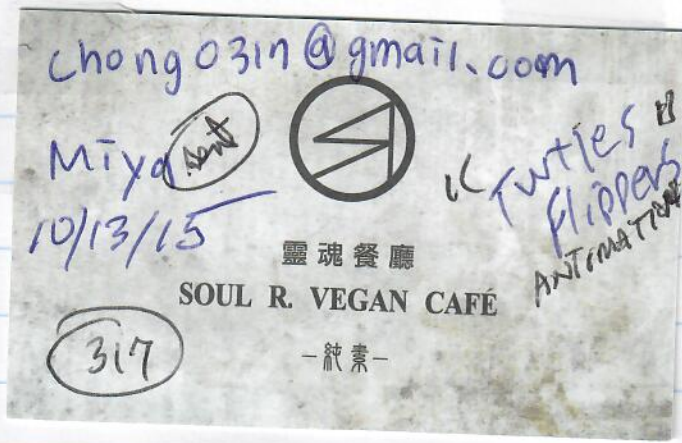 chong0317@gmail.com
Miya
sent
10/13/15
"Turtles
Flippers"
ANIMATION
靈魂餐廳
SOUL R. VEGAN CAFÉ
317
-純素-